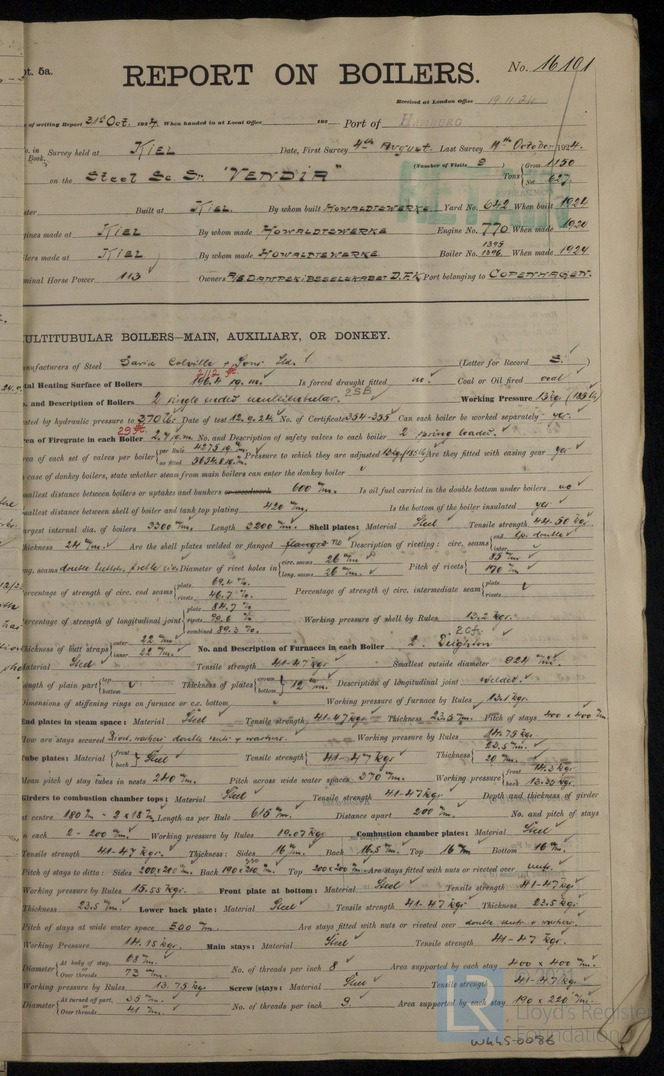 pt. 5a.
REPORT ON BOILERS.
No. 16101
Received at London Office 19 11 24
of writing Report 21st Oct. 1924 When handed in at Local Office 192 Port of HAMBURG
No. in Book. Survey held at KIEL Date, First Survey 4th August. Last Survey 11th October 1924.
(Number of Visits 8 ) Gross 1150
on the Steel Sc. Sr. "VENDIA" Tons Net 627
Built at KIEL. By whom built HOWALDTSWERKE Yard No. 642 When built 1924
gines made at KIEL By whom made HOWALDTSWERKE Engine No. 770 When made 1920
ilers made at KIEL By whom made HOWALDTSWERKE Boiler No. 1395 1396 When made 1924
minal Horse Power 113 Owners Port belonging to COPENHAGEN.
MULTITUBULAR BOILERS—MAIN, AUXILIARY, OR DONKEY.
anufacturers of Steel David Colville & Sons Ltd. (Letter for Record S. )
2112
tal Heating Surface of Boilers 196.4 sq. m. Is forced draught fitted no. Coal or Oil fired coal
. and Description of Boilers 2 single ended multitubular. 2SB Working Pressure
ted by hydraulic pressure to Date of test 12.9.24 No. of Certificate 354-355 Can each boiler be worked separately yes.
rea of Firegrate in each Boiler No. and Description of safety valves to each boiler 2 spring loaded.
rea of each set of valves per boiler per Rule as fitted Pressure to which they are adjusted Are they fitted with easing gear yes
case of donkey boilers, state whether steam from main boilers can enter the donkey boiler
mallest distance between boilers or uptakes and bunkers or woodwork 600 m/m. Is oil fuel carried in the double bottom under boilers no
mallest distance between shell of boiler and tank top plating 420 m/m. Is the bottom of the boiler insulated yes
argest internal dia. of boilers 3300 m/m. Length 3200 m/m. Shell plates: Material Steel Tensile strength 44.50 kg.
hickness 24 m/m. Are the shell plates welded or flanged no Description of riveting: circ. seams end inter.
ng. seams Diameter of rivet holes in circ. seams 26 m/m long. seams 26 m/m. Pitch of rivets 85 m/m 170 m/m
ercentage of strength of circ. end seams plate 69.4 % rivets 46.7 % Percentage of strength of circ. intermediate seam plate rivets
ercentage of strength of longitudinal joint plate 84.7 % rivets combined 89.3 % Working pressure of shell by Rules 13.2 kgr.
hickness of butt straps outer 22 m/m inner 22 m/m No. and Description of Furnaces in each Boiler 2. Deighton 2 Cf.
aterial Steel Tensile strength 41-47 kgr Smallest outside diameter 924 m/m.
ength of plain part top bottom Thickness of plates crown bottom 12 m/m. Description of longitudinal joint welded.
Dimensions of stiffening rings on furnace or c.c. bottom Working pressure of furnace by Rules 13.1 kgr.
End plates in steam space: Material Steel Tensile strength 41-47 kgr. Thickness 23.5 m/m. Pitch of stays 400 x 400 m/m
ow are stays secured double nuts & washers. Working pressure by Rules 14.75 kgr.
ube plates: Material front back Steel Tensile strength 41-47 kgr Thickness 23.5 m/m. 20 m/m.
ean pitch of stay tubes in nests 240 m/m. Pitch across wide water spaces 370 m/m. Working pressure front 14.3 kgr back
irders to combustion chamber tops: Material Steel Tensile strength 41-47 kgr Depth and thickness of girder
t centre 180 m/m - 2 x 18 m/m Length as per Rule 615 m/m. Distance apart 200 m/m. No. and pitch of stays
n each 2 - 200 m/m. Working pressure by Rules 19.07 kgr Combustion chamber plates: Material Steel
ensile strength 41-47 kgr. Thickness: Sides 16 m/m. Back 16.5 m/m. Top 16 m/m Bottom 16 m/m.
Pitch of stays to ditto: Sides 200x210 m/m. Back Top 200x200 m/m. Are stays fitted with nuts or riveted over nuts.
Working pressure by Rules 15.55 kgr. Front plate at bottom: Material Steel Tensile strength 41-47 kgr
Thickness 23.5 m/m. Lower back plate: Material Steel Tensile strength 41-47 kgr Thickness 23.5 kgr.
Pitch of stays at wide water space 300 m/m. Are stays fitted with nuts or riveted over double nuts & washers.
Working Pressure 14.95 kgr. Main stays: Material Steel Tensile strength 41-47 kgr.
Diameter At body of stay, Over threads 73 m/m. No. of threads per inch 8 Area supported by each stay 400 x 400 m/m.
Working pressure by Rules 13.75 kgr. Screw stays: Material Steel Tensile strength 41-47 kgr.
Diameter At turned off part, 35 m/m. Over threads 41 m/m. No. of threads per inch 9. Area supported by each stay 190 x 220 m/m.
LR
Lloyd's Register
Foundation
W445-0086